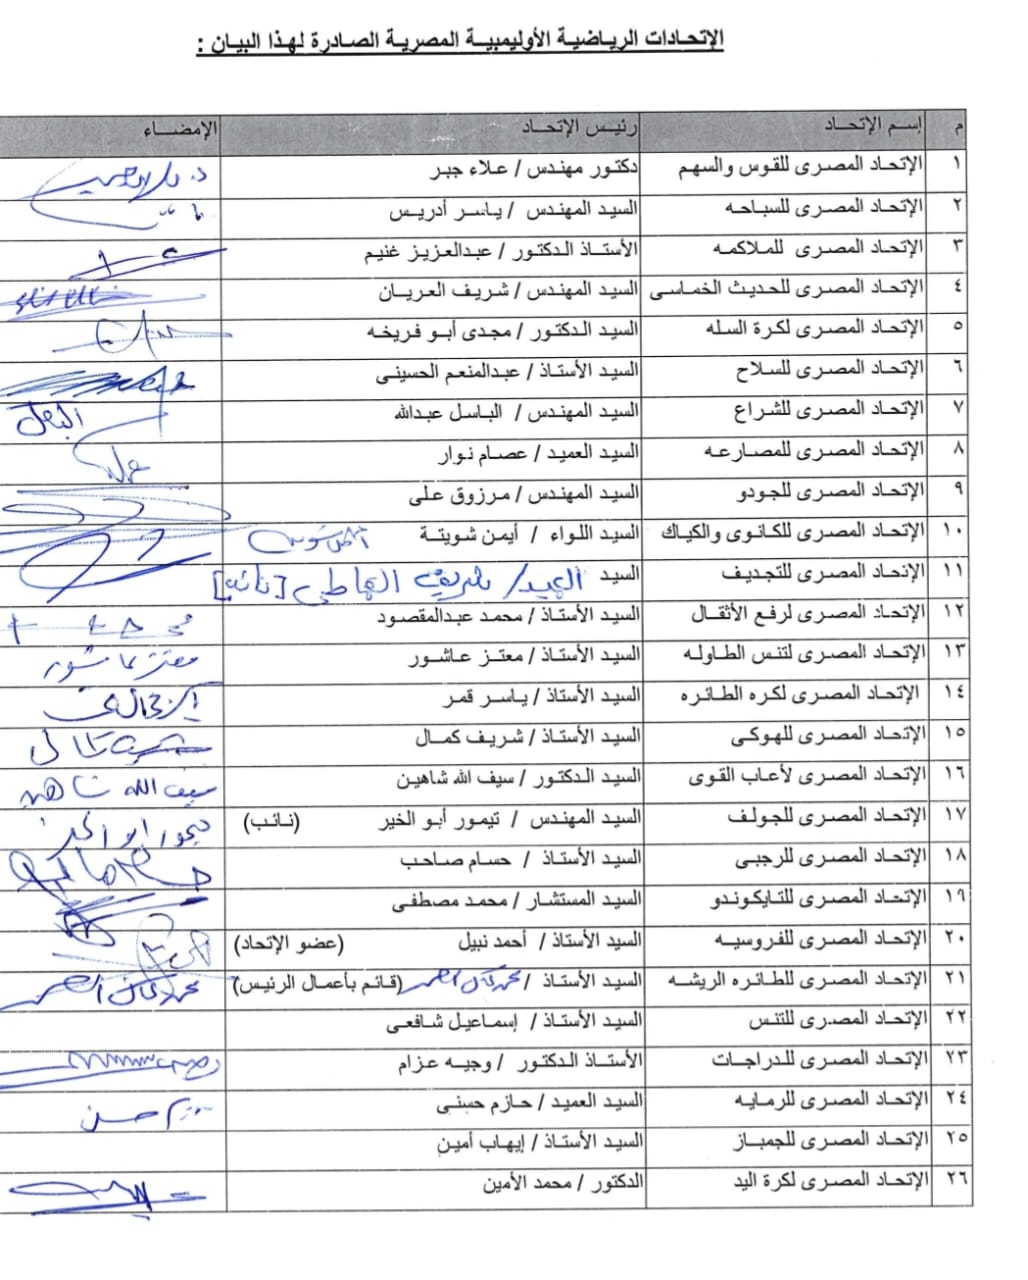 الإتحادات الرياضية الأوليمبية المصرية الصادرة لهذا البيان :
م إسم الإتحاد رئيس الإتحاد الإمضاء
١ الإتحاد المصرى للقوس والسهم دكتور مهندس / علاء جبر
٢ الإتحاد المصرى للسباحه السيد المهندس / ياسر أدريس
٣ الإتحاد المصرى للملاكمه الأستاذ الدكتور / عبدالعزيز غنيم
٤ الإتحاد المصرى للحديث الخماسى السيد المهندس / شريف العريان
٥ الإتحاد المصرى لكرة السله السيد الدكتور / مجدى أبو فريخه
٦ الإتحاد المصرى للسلاح السيد الأستاذ / عبدالمنعم الحسينى
٧ الإتحاد المصرى للشراع السيد المهندس / الباسل عبدالله
٨ الإتحاد المصرى للمصارعه السيد العميد / عصام نوار
٩ الإتحاد المصرى للجودو السيد المهندس / مرزوق على
١٠ الإتحاد المصرى للكانوى والكياك السيد اللواء / أيمن شويتة
١١ الإتحاد المصرى للتجديف السيد العميد / شريف القماطى [نائب]
١٢ الإتحاد المصرى لرفع الأثقال السيد الأستاذ / محمد عبدالمقصود
١٣ الإتحاد المصرى لتنس الطاوله السيد الأستاذ / معتز عاشور معتز عاشور
١٤ الإتحاد المصرى لكره الطائره السيد الأستاذ / ياسر قمر
١٥ الإتحاد المصرى للهوكى السيد الأستاذ / شريف كمال
١٦ الإتحاد المصرى لأعاب القوى السيد الدكتور / سيف الله شاهين سيف الله شاهين
١٧ الإتحاد المصرى للجولف السيد المهندس / تيمور أبو الخير (نائب) تيمور ابو الخير
١٨ الإتحاد المصرى للرجبى السيد الأستاذ / حسام صاحب
١٩ الإتحاد المصرى للتايكوندو السيد المستشار / محمد مصطفى
٢٠ الإتحاد المصرى للفروسيه السيد الأستاذ / أحمد نبيل (عضو الإتحاد)
٢١ الإتحاد المصرى للطائره الريشه السيد الأستاذ / (قائم بأعمال الرئيس)
٢٢ الإتحاد المصرى للتنس السيد الأستاذ / إسماعيل شافعى
٢٣ الإتحاد المصرى للدراجات الأستاذ الدكتور / وجيه عزام
٢٤ الإتحاد المصرى للرمايه السيد العميد / حازم حسنى
٢٥ الإتحاد المصرى للجمباز السيد الأستاذ / إيهاب أمين
٢٦ الإتحاد المصرى لكرة اليد الدكتور / محمد الأمين